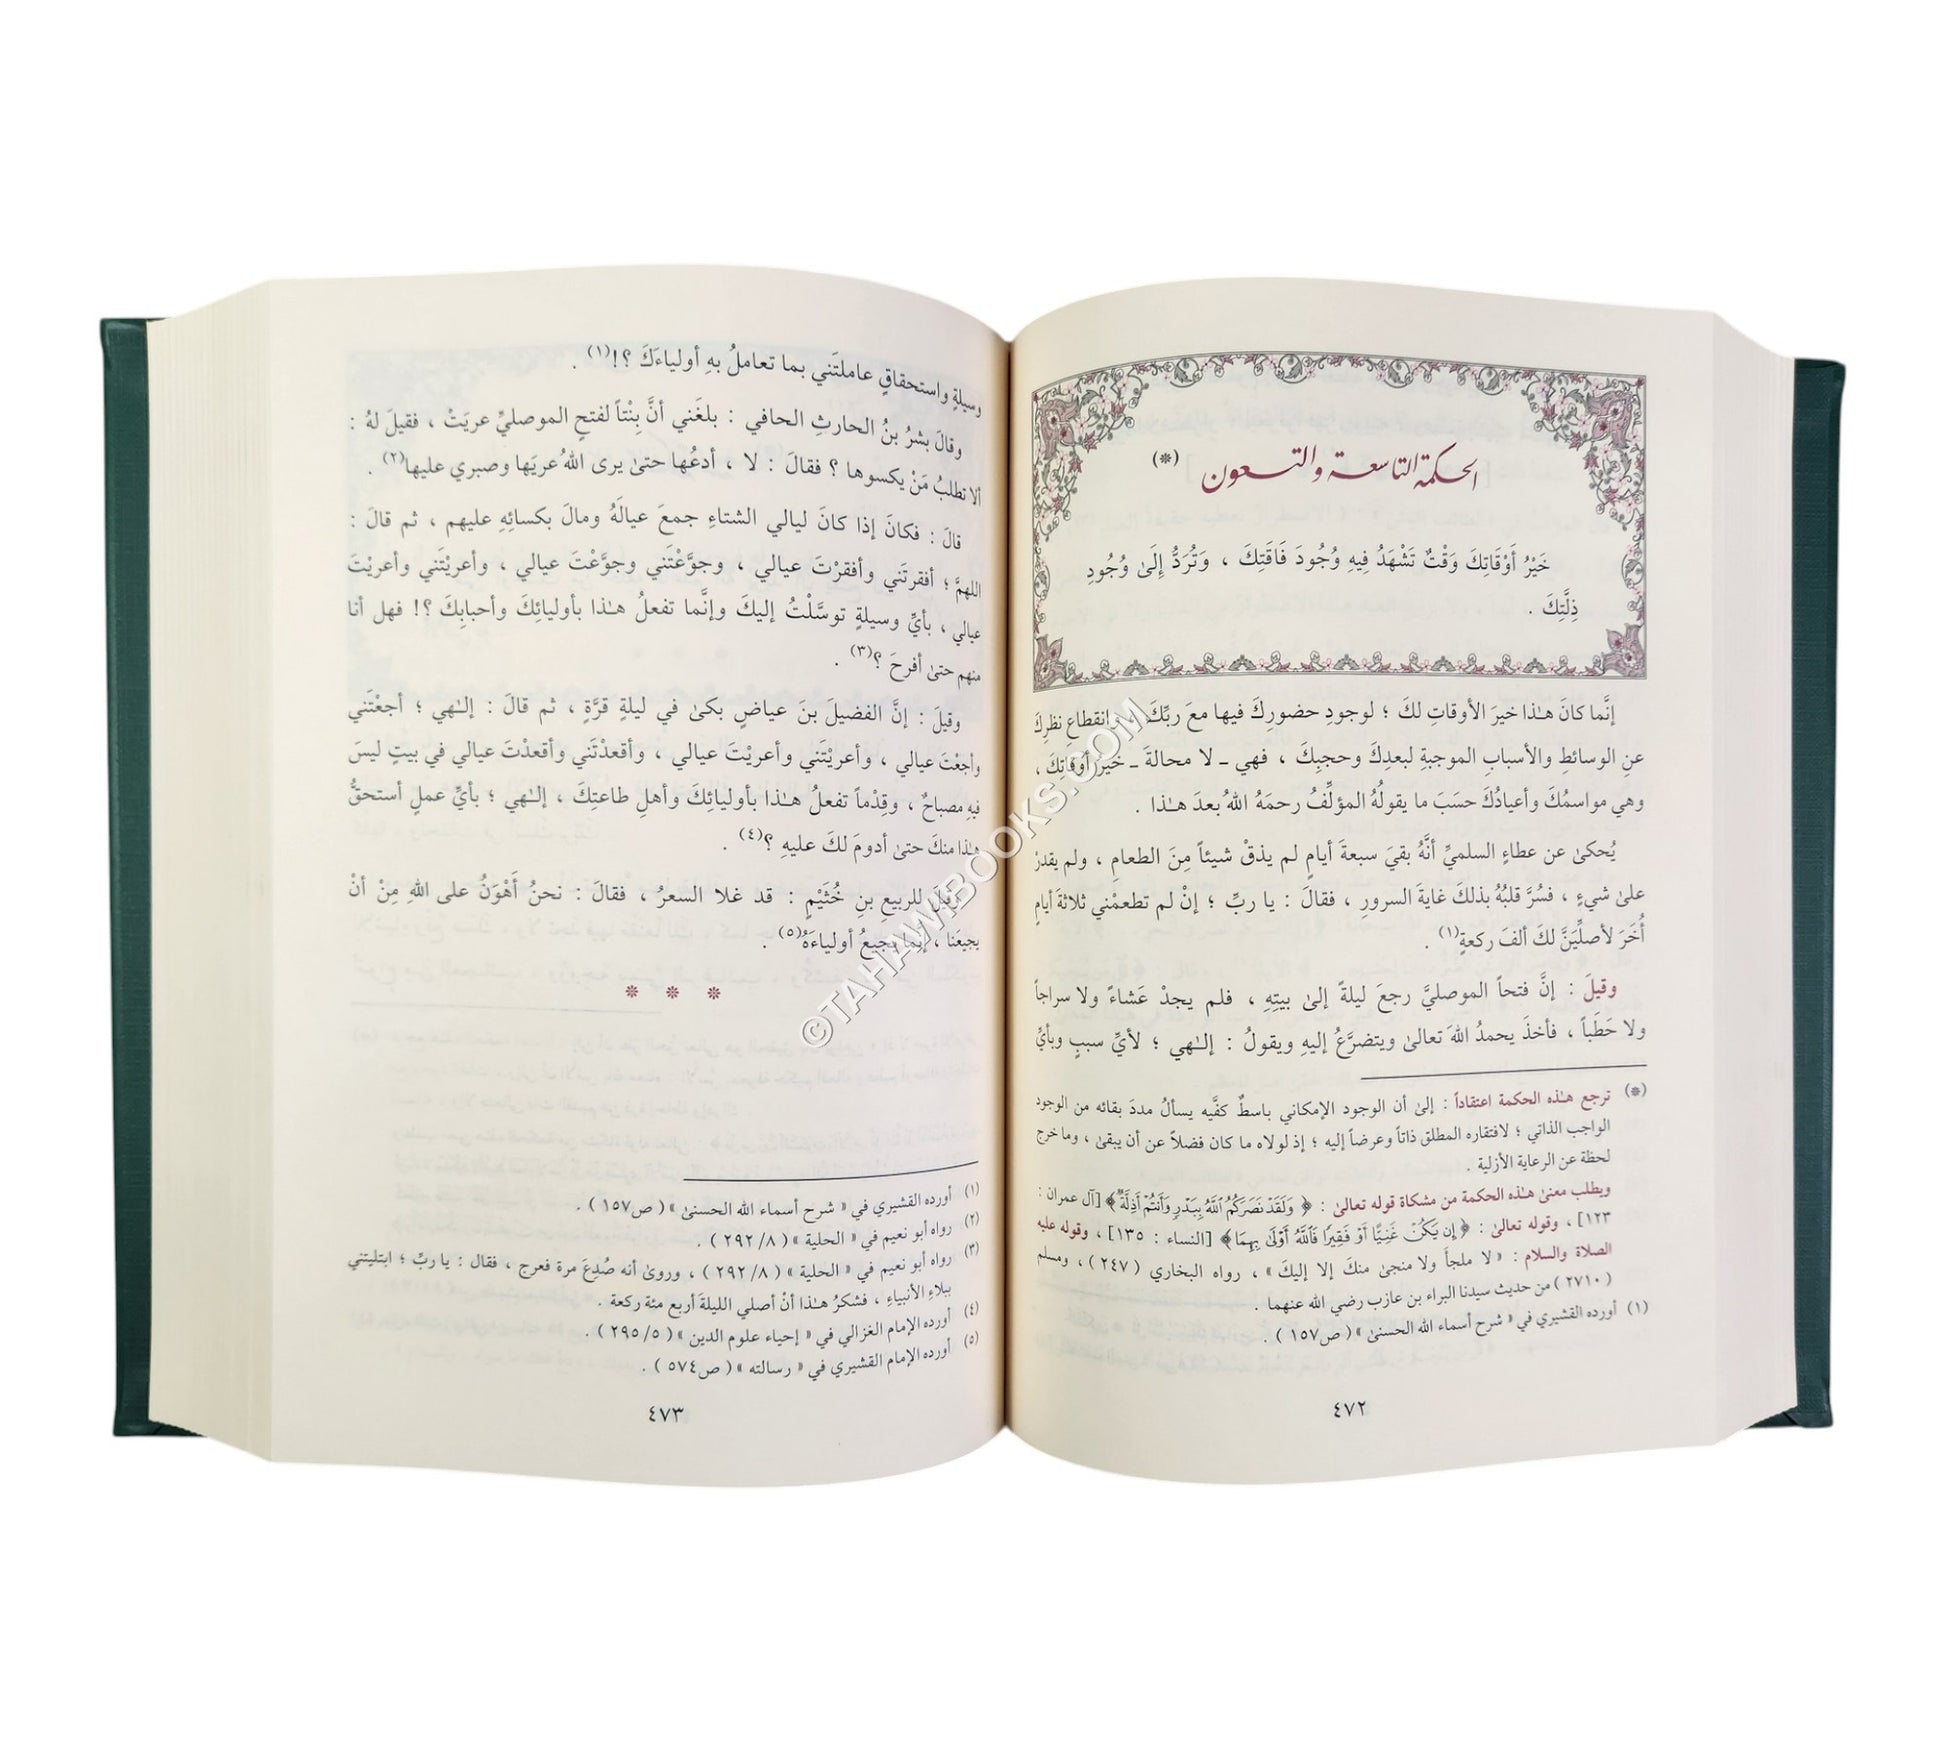 الحكمة التاسعة والتسعون (*)
خَيْرُ أَوْقَاتِكَ وَقْتٌ تَشْهَدُ فِيهِ وُجُودَ فَاقَتِكَ ، وَتُرَدُّ إِلَىٰ وُجُودِ
ذِلَّتِكَ .
إنَّما كانَ هـٰذا خيرَ الأوقاتِ لكَ ؛ لوجودِ حضورِكَ فيها معَ ربِّكَ ، وانقطاعِ نظرِكَ
عنِ الوسائطِ والأسبابِ الموجبةِ لبعدِكَ وحجبِكَ ، فهي ـ لا محالةَ ـ خيرُ أوقاتِكَ ،
وهي مواسمُكَ وأعيادُكَ حسَبَ ما يقولُهُ المؤلِّفُ رحمَهُ اللهُ بعدَ هـٰذا .
يُحكىٰ عن عطاءٍ السلميِّ أنَّهُ بقيَ سبعةَ أيامٍ لم يذقْ شيئاً مِنَ الطعامِ ، ولم يقدرْ
علىٰ شيءٍ ، فسُرَّ قلبُهُ بذلكَ غايةَ السرورِ ، فقالَ : يا ربِّ ؛ إنْ لم تطعمْني ثلاثةَ أيامٍ
أُخَرَ لأصلِّيَنَّ لكَ ألفَ ركعةٍ(١) .
وقيلَ : إنَّ فتحاً الموصليَّ رجعَ ليلةً إلىٰ بيتِهِ ، فلم يجدْ عَشاءً ولا سراجاً
ولا حَطَباً ، فأخذَ يحمدُ اللهَ تعالىٰ ويتضرَّعُ إليهِ ويقولُ : إلـٰهي ؛ لأيِّ سببٍ وبأيِّ
(*) ترجع هـٰذه الحكمة اعتقاداً : إلىٰ أن الوجود الإمكاني باسطٌ كفَّيه يسألُ مددَ بقائه من الوجود
الواجب الذاتي ؛ لافتقاره المطلق ذاتاً وعرضاً إليه ؛ إذ لولاه ما كان فضلاً عن أن يبقىٰ ، وما خرج
لحظة عن الرعاية الأزلية .
ويطلب معنىٰ هـٰذه الحكمة من مشكاة قوله تعالىٰ : ﴿ وَلَقَدْ نَصَرَكُمُ ٱللَّهُ بِبَدْرٍ وَأَنتُمْ أَذِلَّةٌ ﴾ [آل عمران :
١٢٣] ، وقوله تعالىٰ : ﴿ إِن يَكُنْ غَنِيًّا أَوْ فَقِيرًا فَٱللَّهُ أَوْلَىٰ بِهِمَا ﴾ [النساء : ١٣٥] ، وقوله عليه
الصلاة والسلام : « لا ملجأَ ولا منجىٰ منكَ إلا إليكَ » ، رواه البخاري ( ٢٤٧ ) ، ومسلم
( ٢٧١٠ ) من حديث سيدنا البراء بن عازب رضي الله عنهما .
(١) أورده القشيري في « شرح أسماء الله الحسنىٰ » ( ص١٥٧ ) .
٤٧٢
وسيلةٍ واستحقاقٍ عاملتَني بما تعاملُ بهِ أولياءَكَ ؟!(١) .
وقالَ بشرُ بنُ الحارثِ الحافي : بلغَني أنَّ بِنْتاً لفتحٍ الموصليِّ عريَتْ ، فقيلَ لهُ :
ألا تطلبُ مَنْ يكسوها ؟ فقالَ : لا ، أدعُها حتىٰ يرى اللهُ عريَها وصبري عليها(٢) .
قالَ : فكانَ إذا كانَ ليالي الشتاءِ جمعَ عيالَهُ ومالَ بكسائِهِ عليهم ، ثم قالَ :
اللهمَّ ؛ أفقرتَني وأفقرْتَ عيالي ، وجوَّعْتَني وجوَّعْتَ عيالي ، وأعريْتَني وأعريْتَ
عيالي ، بأيِّ وسيلةٍ توسَّلْتُ إليكَ وإنَّما تفعلُ هـٰذا بأوليائِكَ وأحبابِكَ ؟! فهل أنا
منهم حتىٰ أفرحَ ؟(٣) .
وقيلَ : إنَّ الفضيلَ بنَ عياضٍ بكىٰ في ليلةٍ قرَّةٍ ، ثم قالَ : إلـٰهي ؛ أجعْتَني
وأجعْتَ عيالي ، وأعريْتَني وأعريْتَ عيالي ، وأقعدْتَني وأقعدْتَ عيالي في بيتٍ ليسَ
فيهِ مصباحٌ ، وقِدْماً تفعلُ هـٰذا بأوليائِكَ وأهلِ طاعتِكَ ، إلـٰهي ؛ بأيِّ عملٍ أستحقُّ
هـٰذا منكَ حتىٰ أدومَ لكَ عليهِ ؟(٤) .
وقيلَ للربيعِ بنِ خُثَيْمٍ : قد غلا السعرُ ، فقالَ : نحنُ أَهْوَنُ على اللهِ مِنْ أنْ
يجيعَنا ، إنما يجيعُ أولياءَهُ(٥) .
* * *
(١) أورده القشيري في « شرح أسماء الله الحسنىٰ » ( ص١٥٧ ) .
(٢) رواه أبو نعيم في « الحلية » ( ٢٩٢/٨ ) .
(٣) رواه أبو نعيم في « الحلية » ( ٢٩٢/٨ ) ، وروىٰ أنه صُدِعَ مرة ففرح ، فقال : يا ربِّ ؛ ابتليتني
ببلاءِ الأنبياءِ ، فشكرُ هـٰذا أنْ أصلي الليلةَ أربع مئة ركعة .
(٤) أورده الإمام الغزالي في « إحياء علوم الدين » ( ٢٩٥/٥ ) .
(٥) أورده الإمام القشيري في « رسالته » ( ص٥٧٤ ) .
٤٧٣
©TAHAWIBOOKS.COM